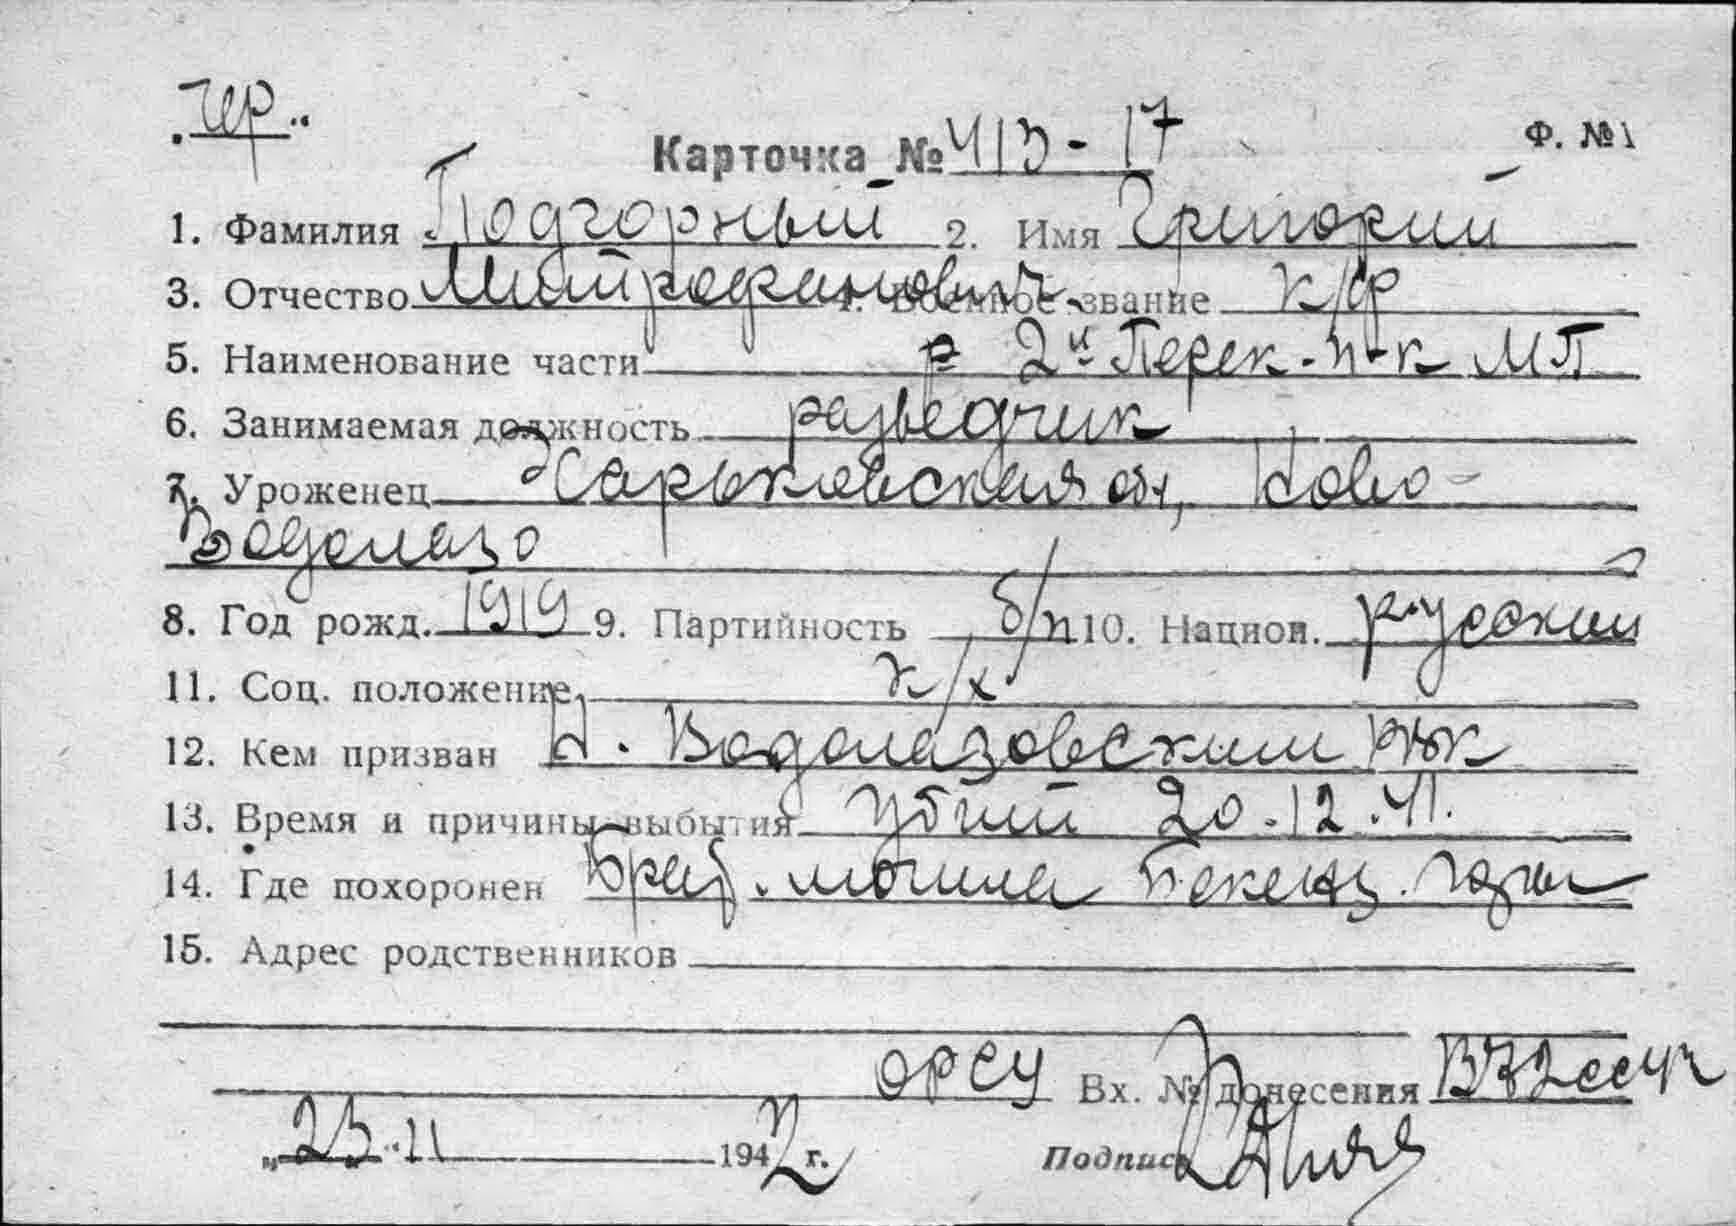 "Чр"
Ф. №1
Карточка № 413-17
1. Фамилия Подгорный 2. Имя Григорий
3. Отчество Митрофанович 4. Военное звание к/ф
5. Наименование части 2й Перек. п-к МП
6. Занимаемая должность разведчик
7. Уроженец Харьковская обл, Ново-
Водолазо
8. Год рожд. 1919 9. Партийность б/п 10. Национ. русский
11. Соц. положение к/х
12. Кем призван Н. Водолазовским РВК
13. Время и причины выбытия Убит 20.12.41.
14. Где похоронен Брат. могила Бекенз. горы
15. Адрес родственников
ОРСУ Вх. № донесения
"23" 11 1942 г. Подпись